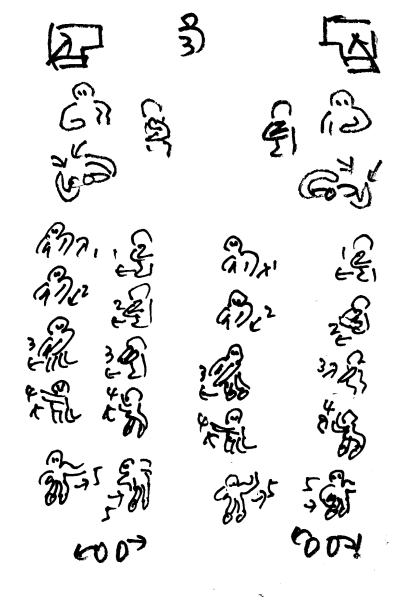 3
1 1 1 1
2 2 2 2
3 3 3 3
4 4 4 4
5 5 5 5